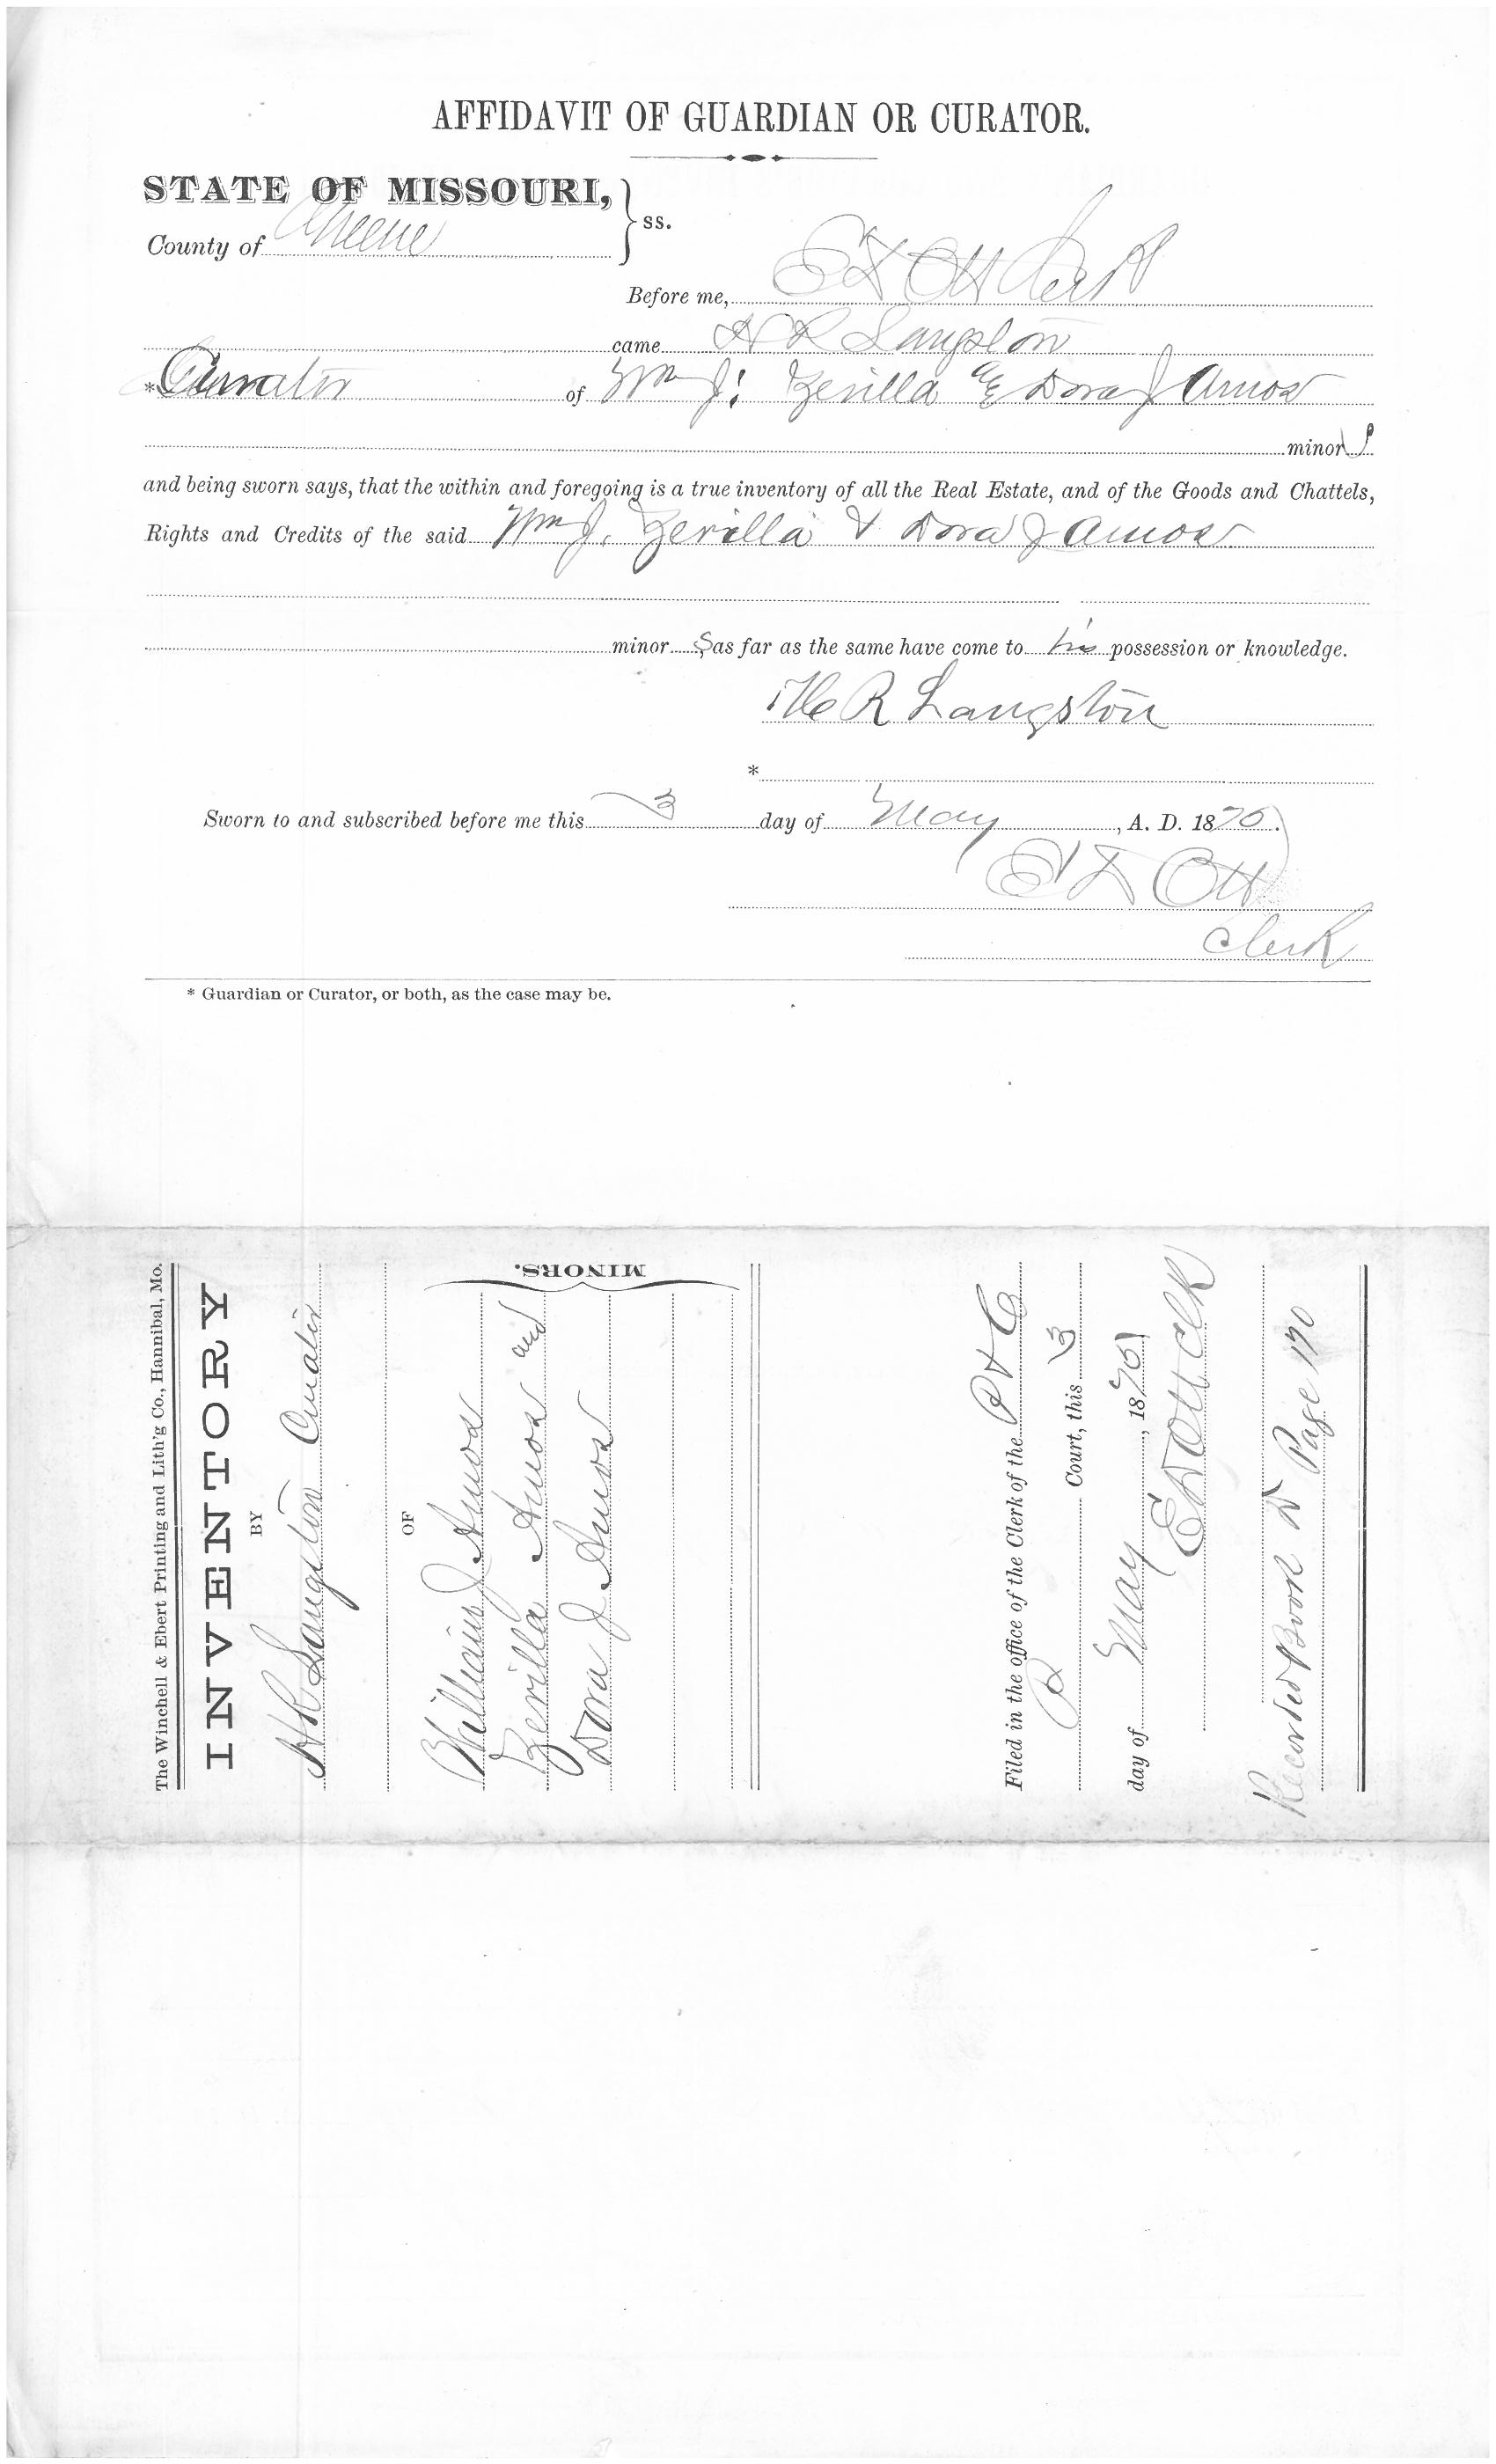 AFFIDAVIT OF GUARDIAN OR CURATOR.
STATE OF MISSOURI,
County of Greene
ss.
Before me, E D Ott Clerk
came H R Langston
*Currator of Wm J. Zerilla & Dora J Amos
minor s
and being sworn says, that the within and foregoing is a true inventory of all the Real Estate, and of the Goods and Chattels,
Rights and Credits of the said Wm J. Zerilla & Dora J Amos
minor s as far as the same have come to his possession or knowledge.
H R Langston
*
Sworn to and subscribed before me this 3 day of May, A. D. 1870.
E D Ott
Clerk
* Guardian or Curator, or both, as the case may be.
The Winchell & Ebert Printing and Lith'g Co., Hannibal, Mo.
INVENTORY
BY
H R Langston Curator
OF
William J Amos
Zerilla Amos and
Dora J Amos
MINORS.
Filed in the office of the Clerk of the P & C
Court, this 3
day of May, 1870
E D Ott Clk
Recorded Book D Page 170